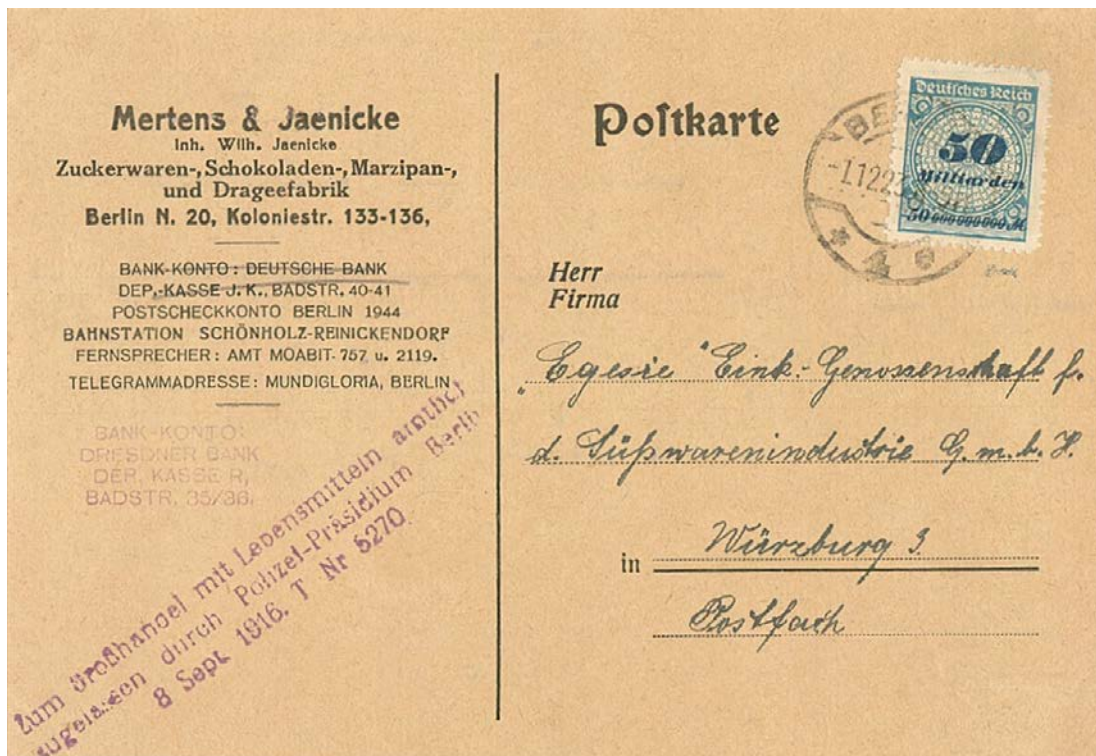 Mertens & Jaenicke
Inh. Wilh. Jaenicke
Zuckerwaren-, Schokoladen-, Marzipan-,
und Drageefabrik
Berlin N. 20, Koloniestr. 133-136,
BANK-KONTO: DEUTSCHE BANK
DEP.-KASSE J. K., BADSTR. 40-41
POSTSCHECKKONTO BERLIN 1944
BAHNSTATION SCHÖNHOLZ-REINICKENDORF
FERNSPRECHER: AMT MOABIT 757 u. 2119.
TELEGRAMMADRESSE: MUNDIGLORIA, BERLIN
BANK-KONTO:
DRESDNER BANK
DEP. KASSE R,
BADSTR. 35/36.
Zum Großhandel mit Lebensmitteln
zugelassen durch Polizei-Präsidium Berlin
8 Sept. 1916. T Nr 5270.
Poſtkarte
Deutſches Reich
50
Milliarden
50 000 000 000 M
-1.12.23
Herr
Firma
„Egesie" Eink.-Genossenschaft f.
d. Süßwarenindustrie G. m. b. H.
in Würzburg 3
Postfach